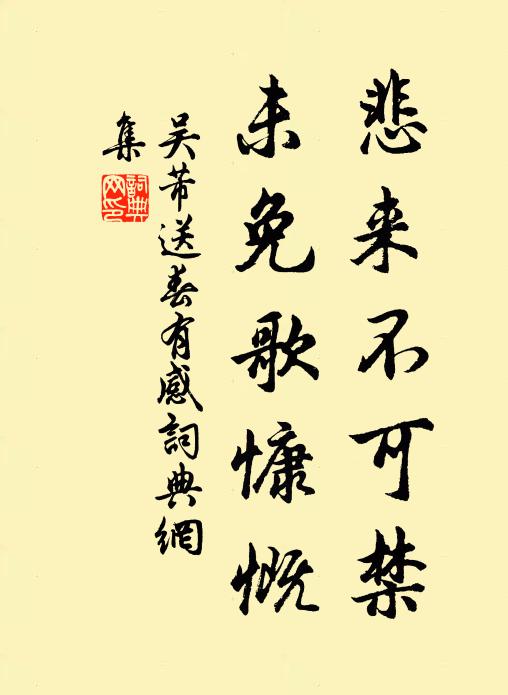 悲来不可禁
未免歌慷慨
吴芾送春有感詞典網
集
詞典
网印